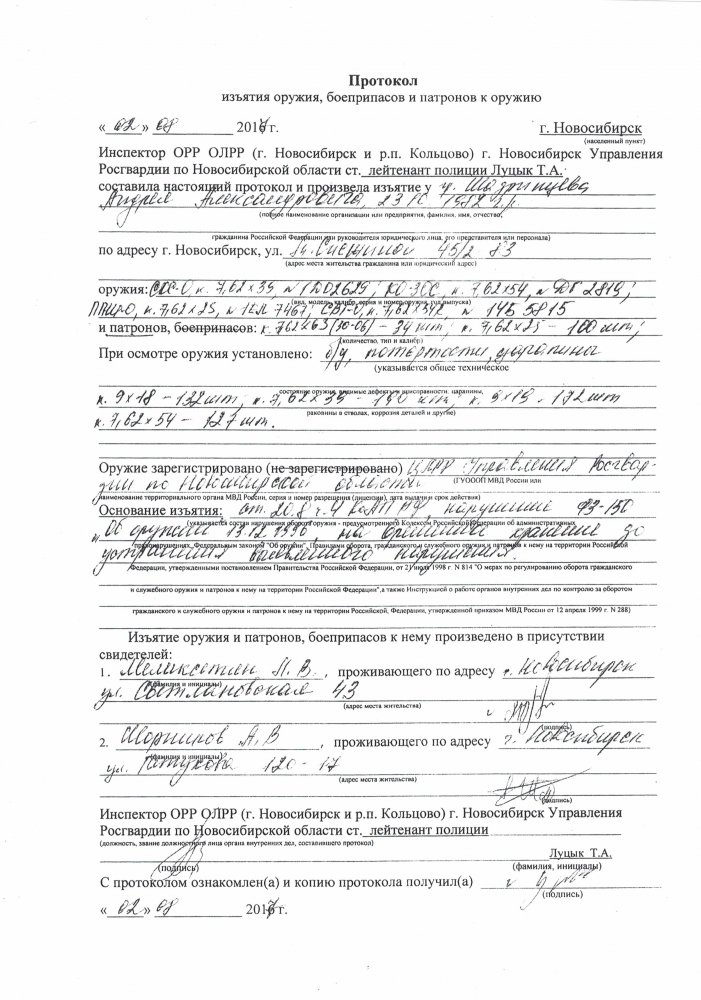 Протокол
изъятия оружия, боеприпасов и патронов к оружию
« 02 » 08 2017 г. г. Новосибирск
(населенный пункт)
Инспектор ОРР ОЛРР (г. Новосибирск и р.п. Кольцово) г. Новосибирск Управления
Росгвардии по Новосибирской области ст. лейтенант полиции Луцык Т.А.
составила настоящий протокол и произвела изъятие у гр. Шадринцева
Андрея Александровича, 1982 г.р.
(полное наименование организации или предприятия, фамилия, имя, отчество,
гражданина Российской Федерации или руководителя юридического лица, его представителя или персонала)
по адресу г. Новосибирск, ул. 45/2 83
(адрес места жительства гражданина или юридический адрес)
оружия: к. 7,62х39, к. 7,62х54,
(вид, модель, калибр, серия и номер оружия, год выпуска)
к. 7,62х25, 7467, 5815
и патронов, боеприпасов: к. 7,62х63 (30-06) – 34 шт; к. 7,62х25 – 100 шт;
(количество, тип и калибр)
При осмотре оружия установлено: б/у, потертости, царапины
(указывается общее техническое
состояние оружия, видимые дефекты и неисправности: царапины,
к. 9х18 – 132 шт, к. 7,62х39 – 190 шт, к. 9х19 - 172 шт
раковины в стволах, коррозия деталей и другие)
к. 7,62х54 – 127 шт.
Оружие зарегистрировано (не зарегистрировано) ЦЛРР Управления Росгвар-
(ГУОООП МВД России или
дии по Новосибирской области
наименование территориального органа МВД России, серия и номер разрешения (лицензии), дата выдачи и срок действия)
Основание изъятия: ст. 20.8 ч. 4 КоАП РФ, нарушение ФЗ-150
(указывается состав нарушения оборота оружия - предусмотренного Кодексом Российской Федерации об административных
"Об оружии" 13.12.1996, на временное хранение до
правонарушениях, Федеральным законом "Об оружии", Правилами оборота, гражданского и служебного оружия и патронов к нему на территории Российской
устранения выявленного нарушения.
Федерации, утвержденными постановлением Правительства Российской Федерации, от 21 июля 1998 г. N 814 "О мерах по регулированию оборота гражданского
и служебного оружия и патронов к нему на территории Российской Федерации", а также Инструкцией о работе органов внутренних дел по контролю за оборотом
гражданского и служебного оружия и патронов к нему на территории Российской, Федерации, утвержденной приказом МВД России от 12 апреля 1999 г. N 288)
Изъятие оружия и патронов, боеприпасов к нему произведено в присутствии
свидетелей:
1. Меликсетян М. В., проживающего по адресу г. Новосибирск
(фамилия и инициалы)
ул. Светлановская 43
(адрес места жительства)
(подпись)
2. А. В , проживающего по адресу г. Новосибирск
(фамилия и инициалы)
ул. Петухова 120 - 17
(адрес места жительства)
(подпись)
Инспектор ОРР ОЛРР (г. Новосибирск и р.п. Кольцово) г. Новосибирск Управления
Росгвардии по Новосибирской области ст. лейтенант полиции
(должность, звание должностного лица органа внутренних дел, составившего протокол)
Луцык Т.А.
(подпись) (фамилия, инициалы)
С протоколом ознакомлен(а) и копию протокола получил(а)
(подпись)
« 02 » 08 2017 г.